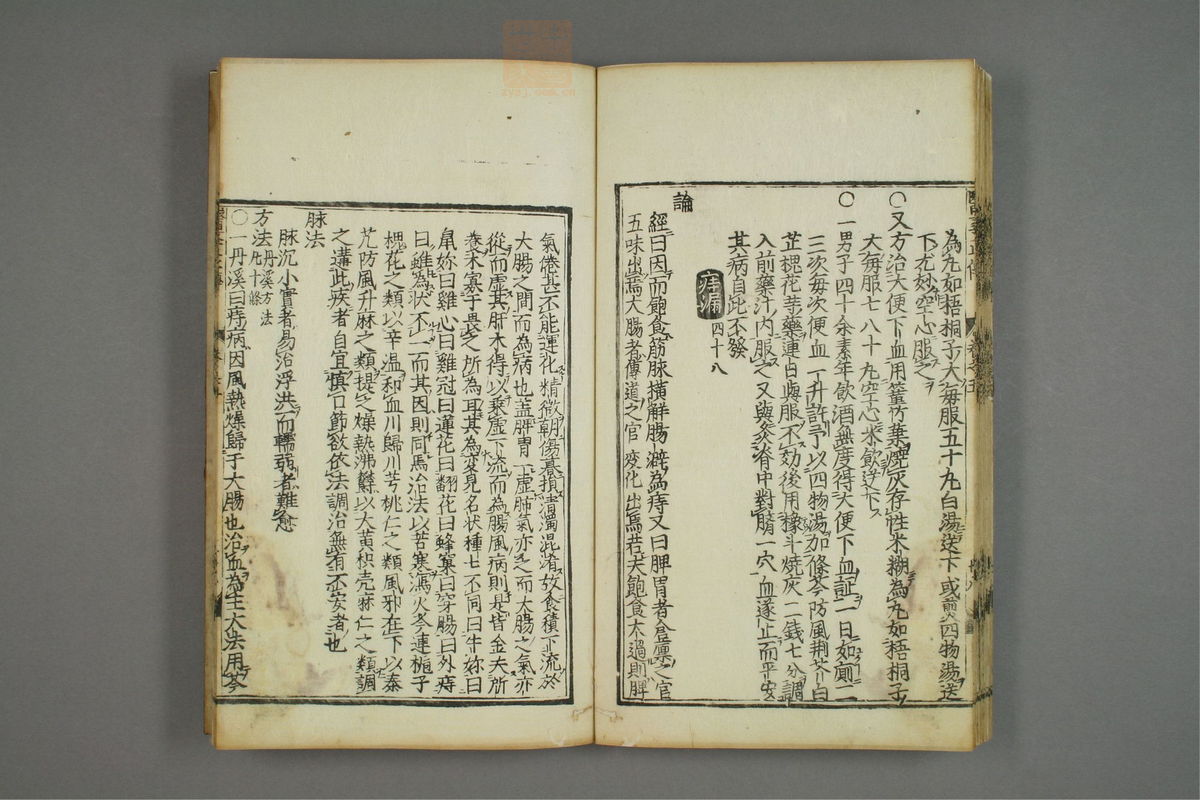 為丸如梧桐子大每服五十丸白湯送下或煎四物湯送
下尤妙空心服之
○又方治大便下血用篁竹葉燒灰存性米糊為丸如梧桐子
大每服七八十丸空心米飲送下
○一男子四十余素年飲酒無度得大便下血証一日如廁二
三次每次便血一升許予以四物湯加條芩防風荆芥白
芷槐花等藥連日與服不効後用橡斗燒灰二錢七分調
入前藥汁內服之又與灸脊中對臍一穴血遂止而平安
其病自此不發
痔漏 四十八
論
經曰因而飽食筋脉橫解腸澼為痔又曰脾胃者倉廩之官
五味出焉大腸者傳道之官変化出焉若夫飽食太過則脾
氣倦甚不能運化精微朝傷暮損清濁混淆妏食積下流於
大腸之間而為病也蓋脾胃一虛肺氣亦乏而大腸之氣亦
從而虛其肝木得以乗虛下流而為腸風病則是皆金夫所
養木寡于畏之所為耳其為変見名状種七不同曰牛妳曰
鼠妳曰雞心曰雞冠曰蓮花曰翻花曰蜂窠曰穿腸曰外痔
曰雖為状不一而其因則同焉治法以苦寒瀉火芩連梔子
槐花之類以辛温和血川歸川芎桃仁之類風邪在下以秦
艽防風升麻之類提之燥熱沸欝以大黄枳壳麻仁之類調
之遘此疾者自宜慎口節欲依法調治無有不安者也
脉法
脉沉小實者易治浮洪而軟弱者難愈
方法丹溪方法凡十條
○一丹溪曰痔病因風熱燥歸于大腸也治血為主大法用芩